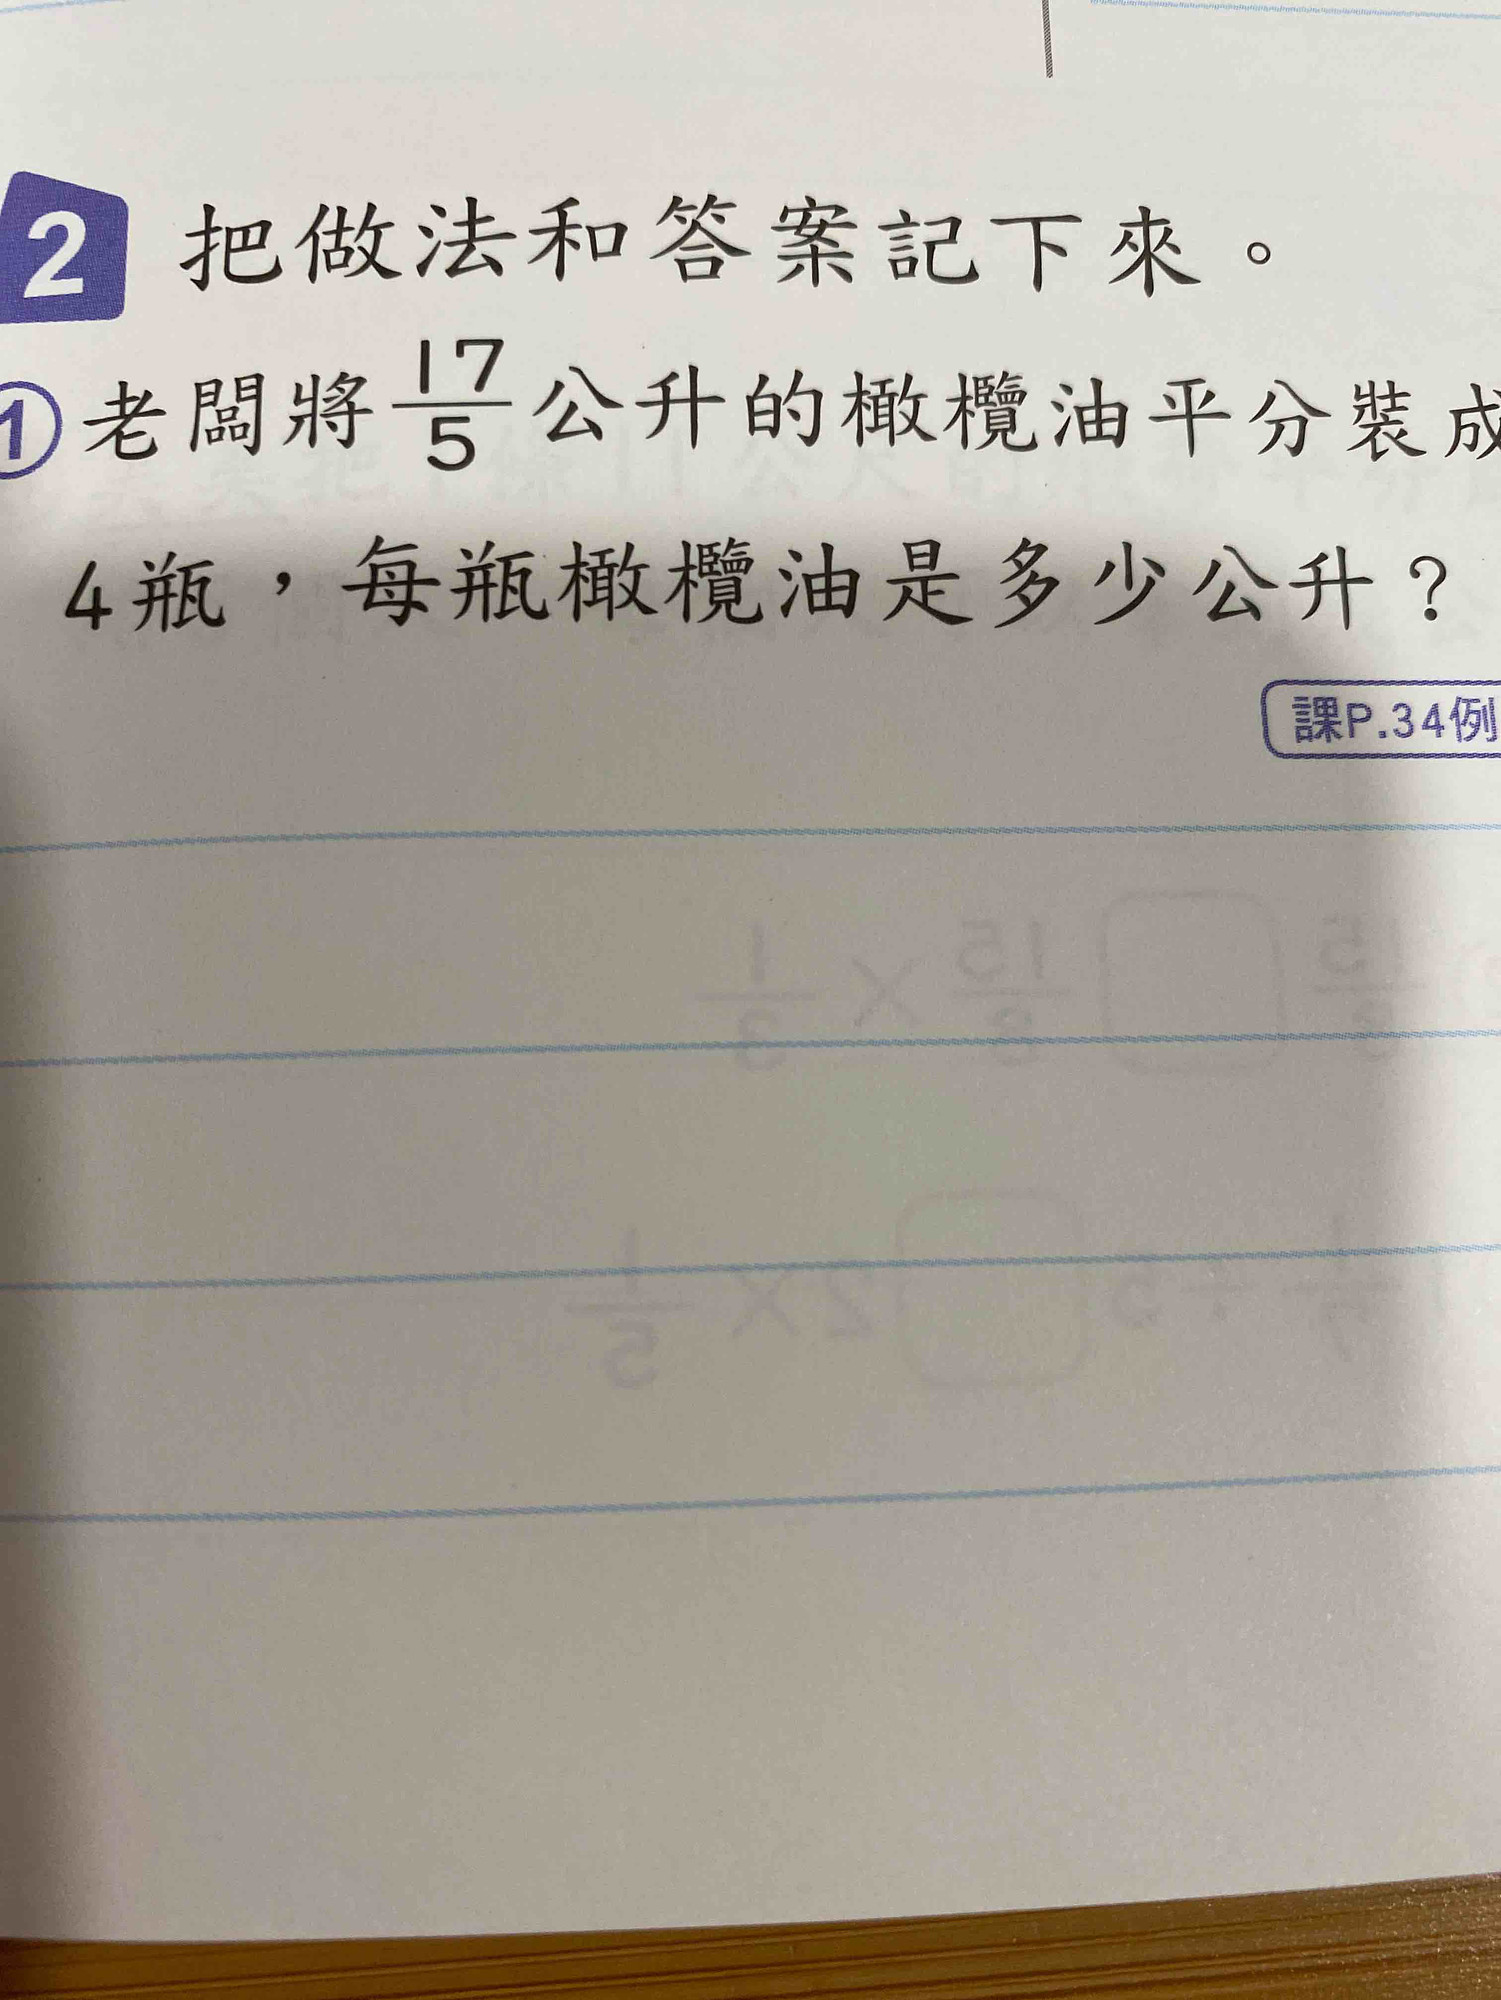 2 把做法和答案記下來。
① 老闆將17/5公升的橄欖油平分裝成
4瓶，每瓶橄欖油是多少公升？
課P.34例